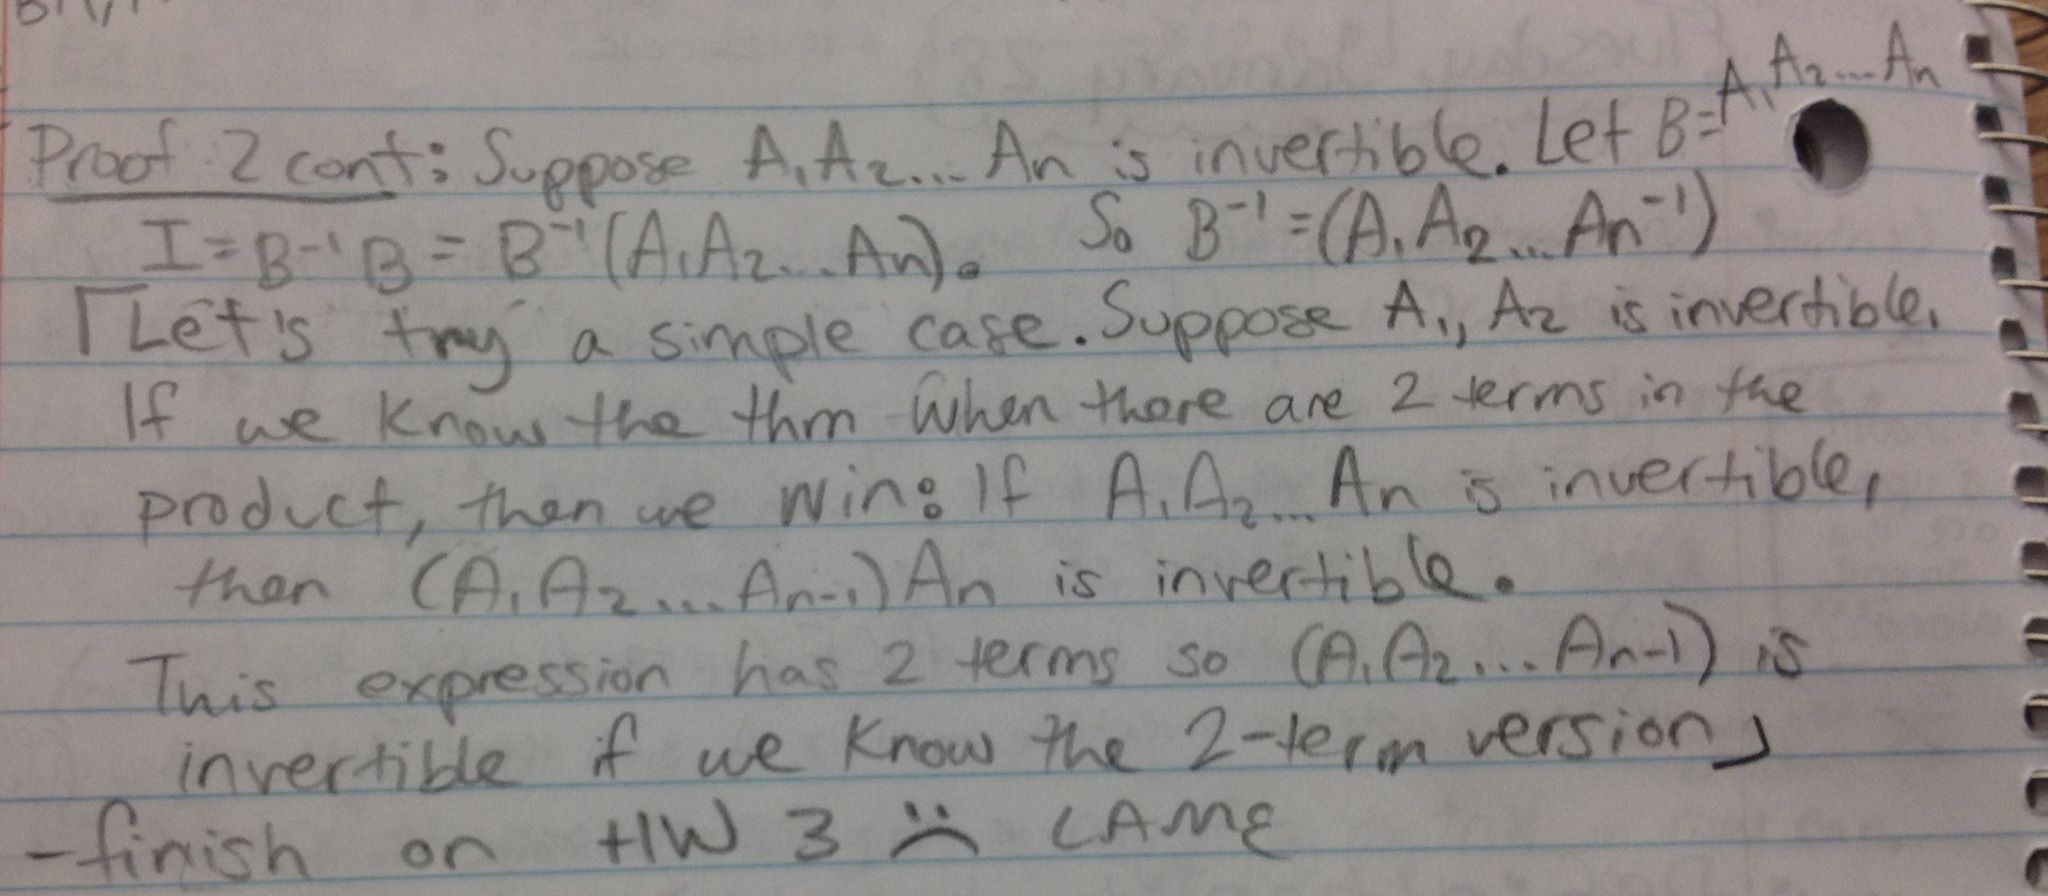 Proof 2 cont: Suppose A₁A₂... An is invertible. Let B=A₁A₂...An
I = B⁻¹B = B⁻¹(A₁A₂...An). So B⁻¹ = (A₁A₂...An⁻¹)
⌈Let's try a simple case. Suppose A₁, A₂ is invertible.
If we know the thm when there are 2 terms in the
product, then we win: If A₁A₂... An is invertible,
then (A₁A₂...An-₁)An is invertible.
This expression has 2 terms so (A₁A₂...An-1) is
invertible if we know the 2-term version⌋
-finish on HW 3 ☹ LAME